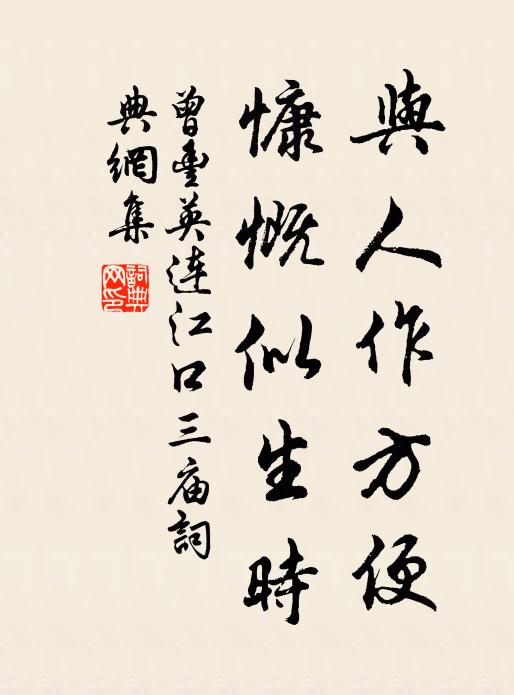 與人作方便
慷慨似生時
曾豐英連江口三庙詞
典網集
詞典网印